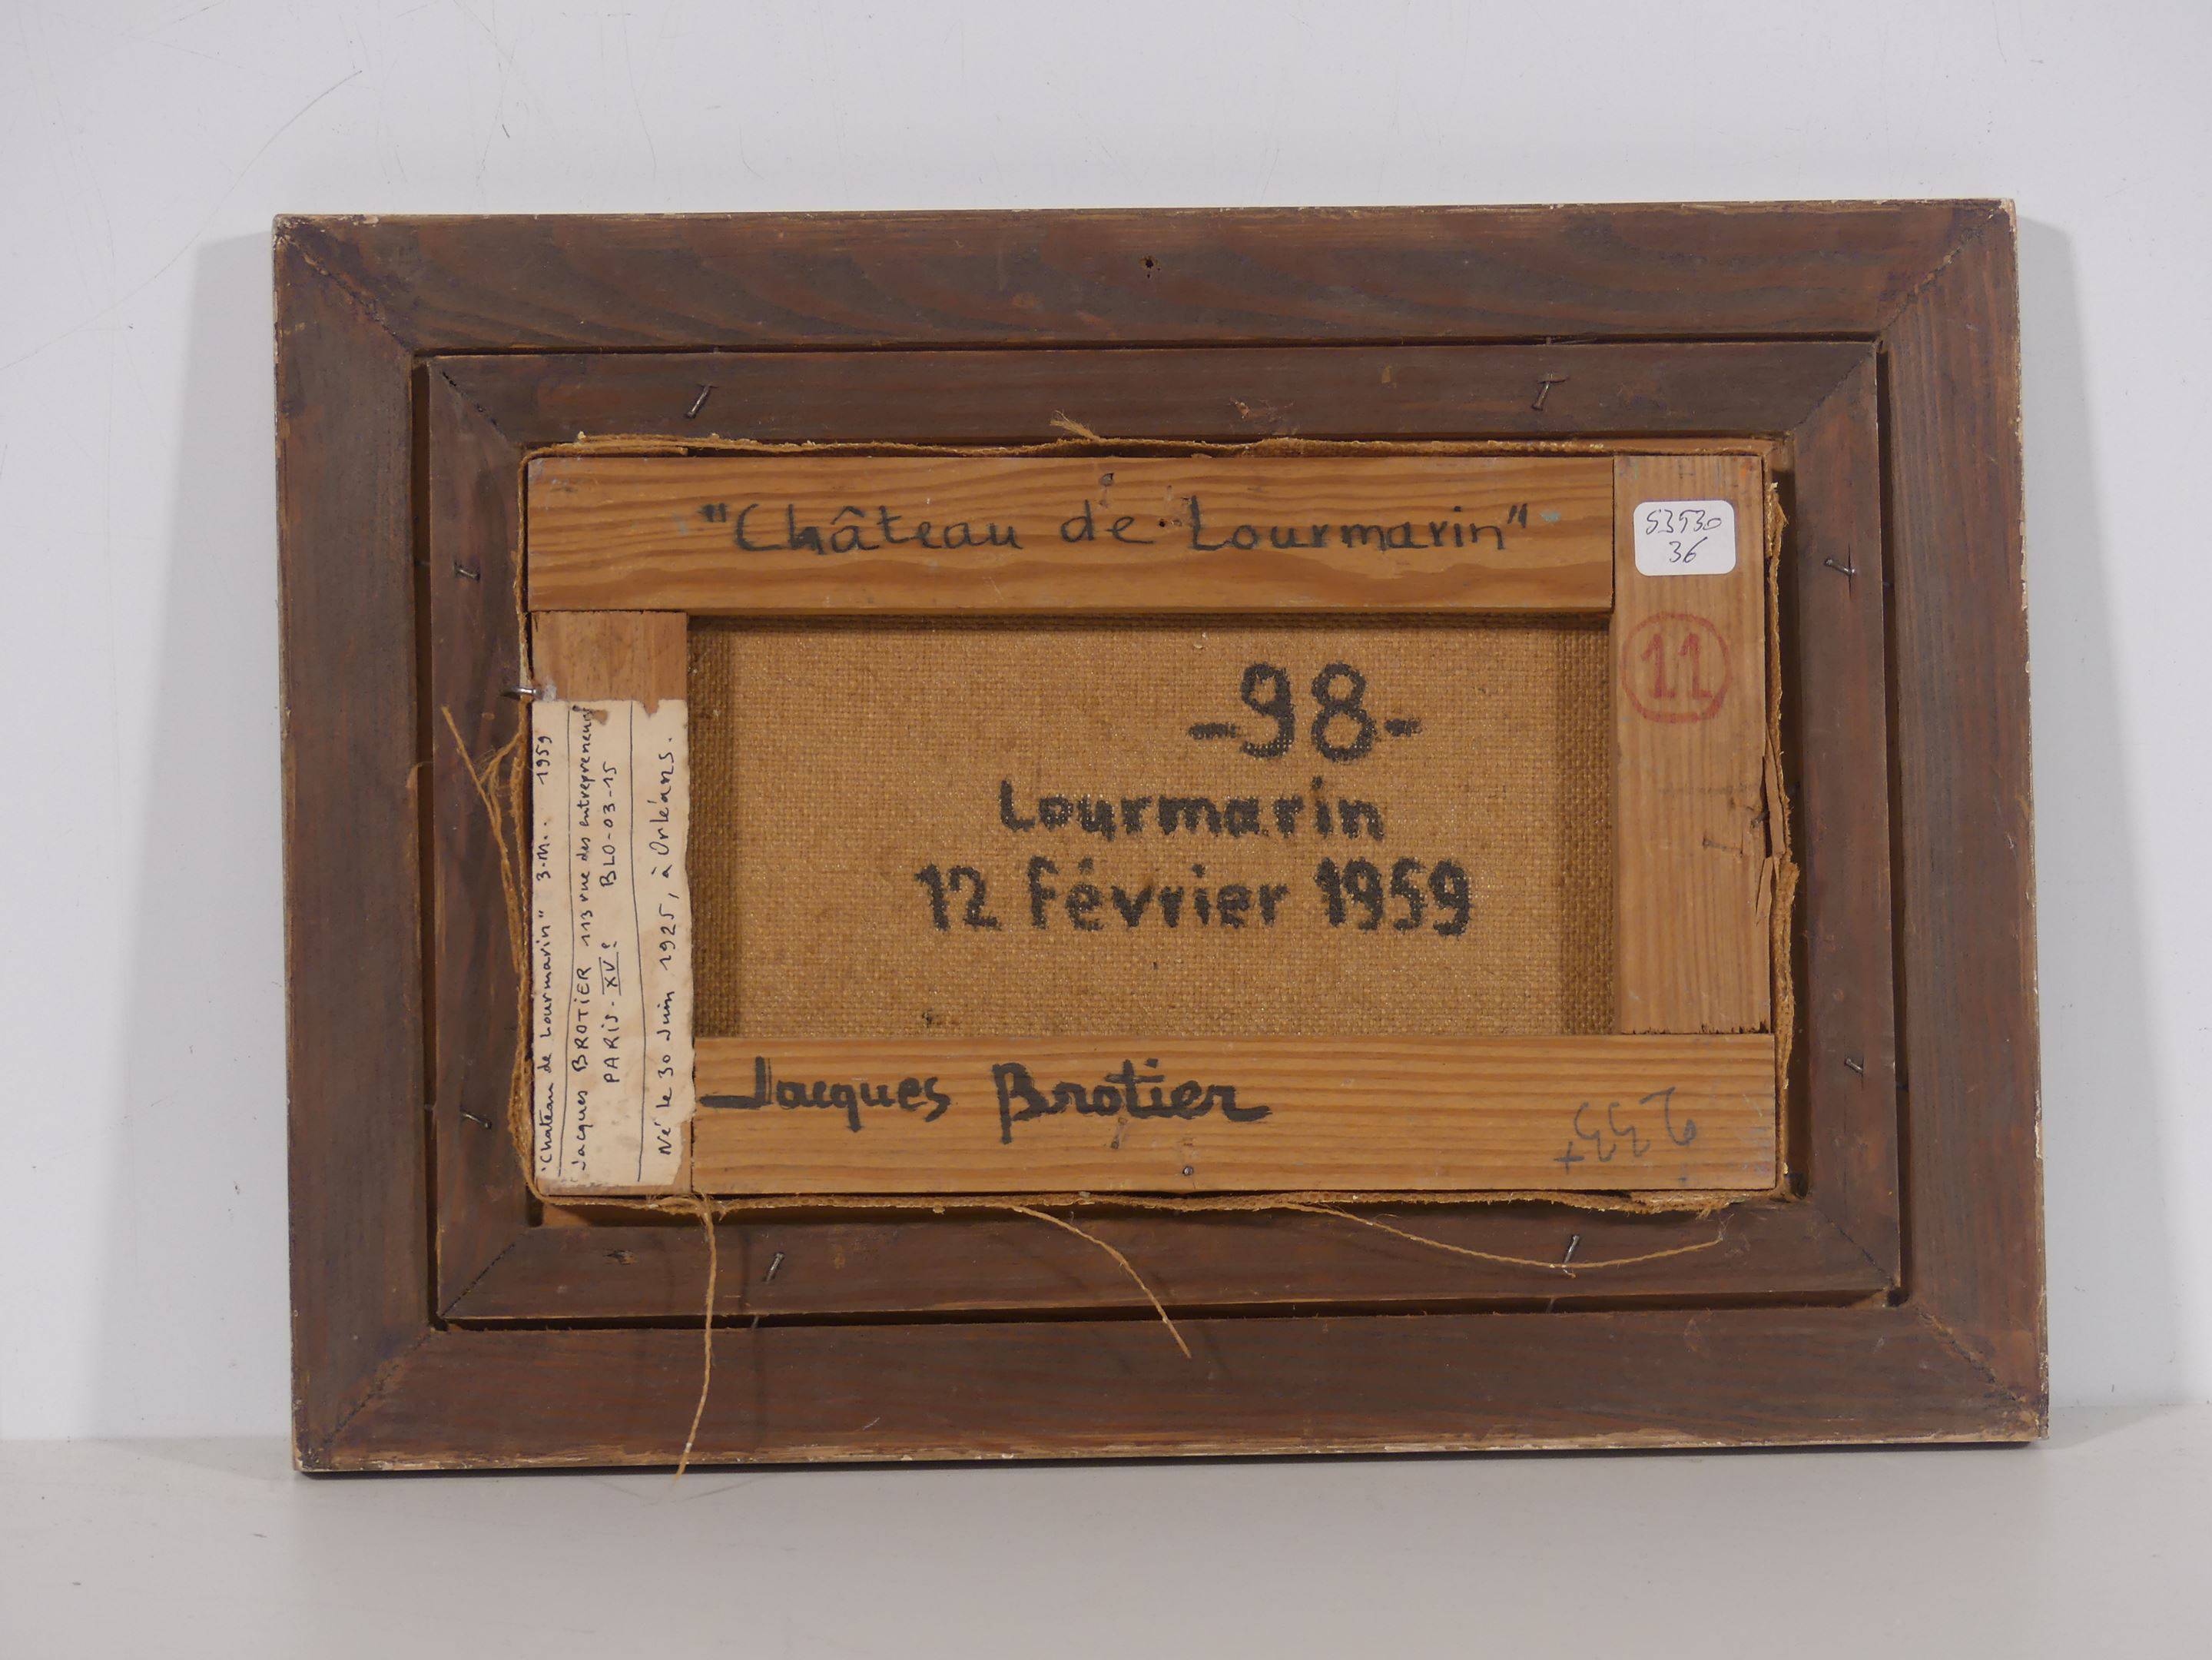 "Château de Lourmarin"
53530
36
11
-98-
Lourmarin
12 Février 1959
"Château de Lourmarin" 3.M. 1959
Jacques BROTIER 113 rue des entrepreneurs
PARIS. XVe BLO-03-15
Né le 30 Juin 1925, à Orléans.
Jacques Brotier